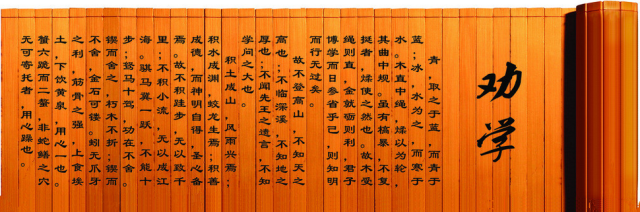 劝学
青，取之于蓝，而青于
蓝；冰，水为之，而寒于
水。木直中绳，煣以为轮，
其曲中规。虽有槁暴，不复
挺者，煣使之然也。故木受
绳则直，金就砺则利，君子
博学而日参省乎己，则知明
而行无过矣。
故不登高山，不知天之
高也；不临深溪，不知地之
厚也；不闻先王之遗言，不知
学问之大也。
积土成山，风雨兴焉；
积水成渊，蛟龙生焉；积善
成德，而神明自得，圣心备
焉。故不积跬步，无以致千
里；不积小流，无以成江
海。骐马冀一跃，不能十
步；驽马十驾，功在不舍。
锲而舍之，朽木不折；锲而
不舍，金石可镂。蚓无爪牙
之利，筋骨之强，上食埃
土，下饮黄泉，用心一也。
蟹六跪而二螯，非蛇鳝之穴
无可寄托者，用心躁也。